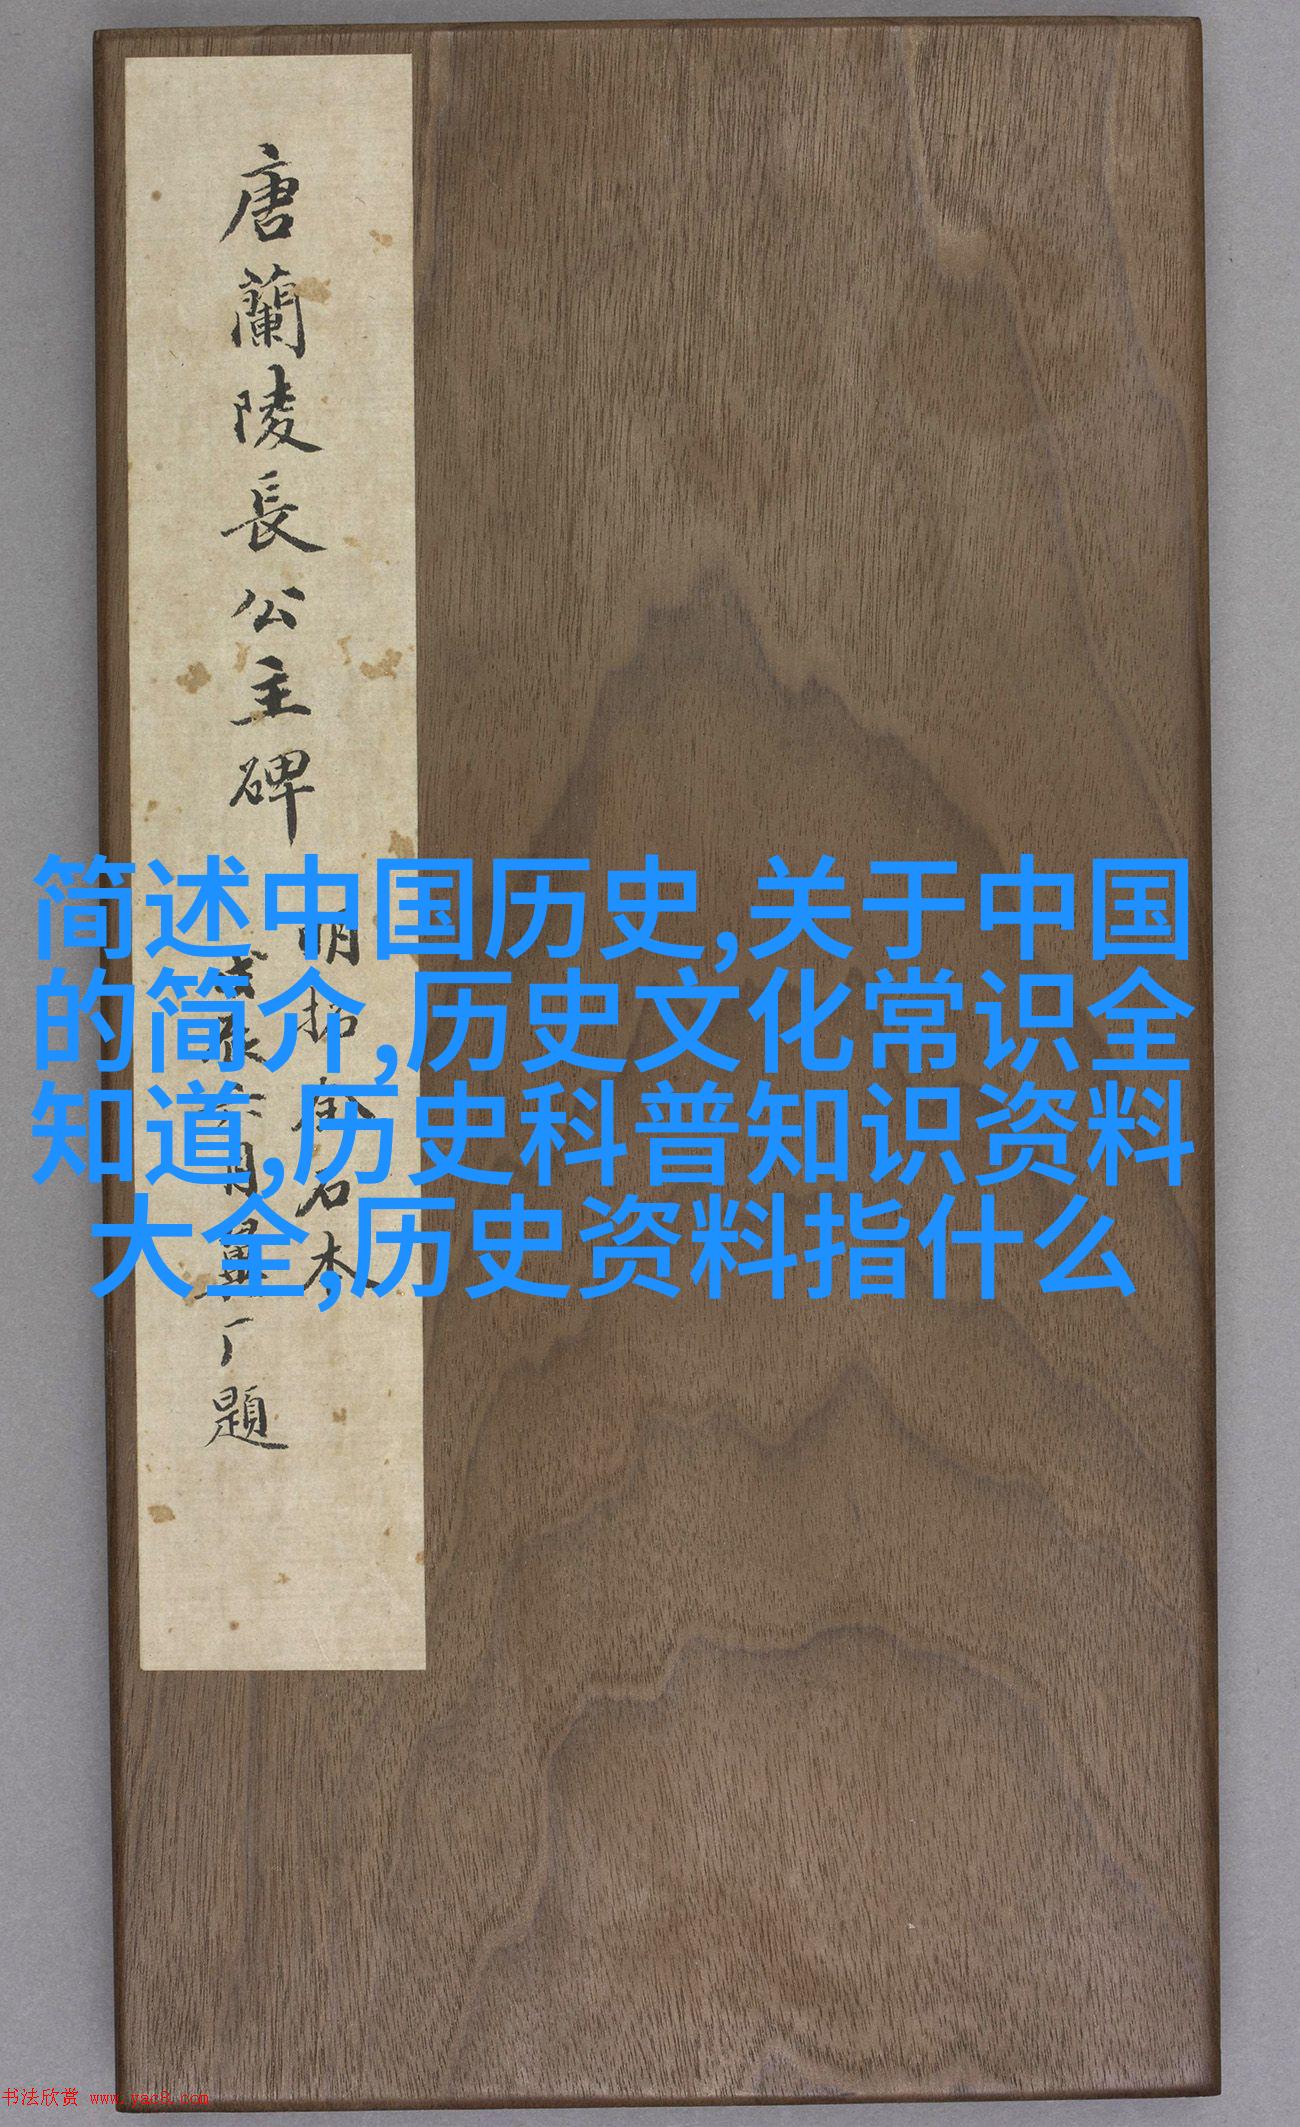 唐蘭陵長公主碑
明拓金石本
題
简述中国历史,关于中国
的简介,历史文化常识全
知道,历史科普知识资料
大全,历史资料指什么
书法欣赏 www.yac8.com